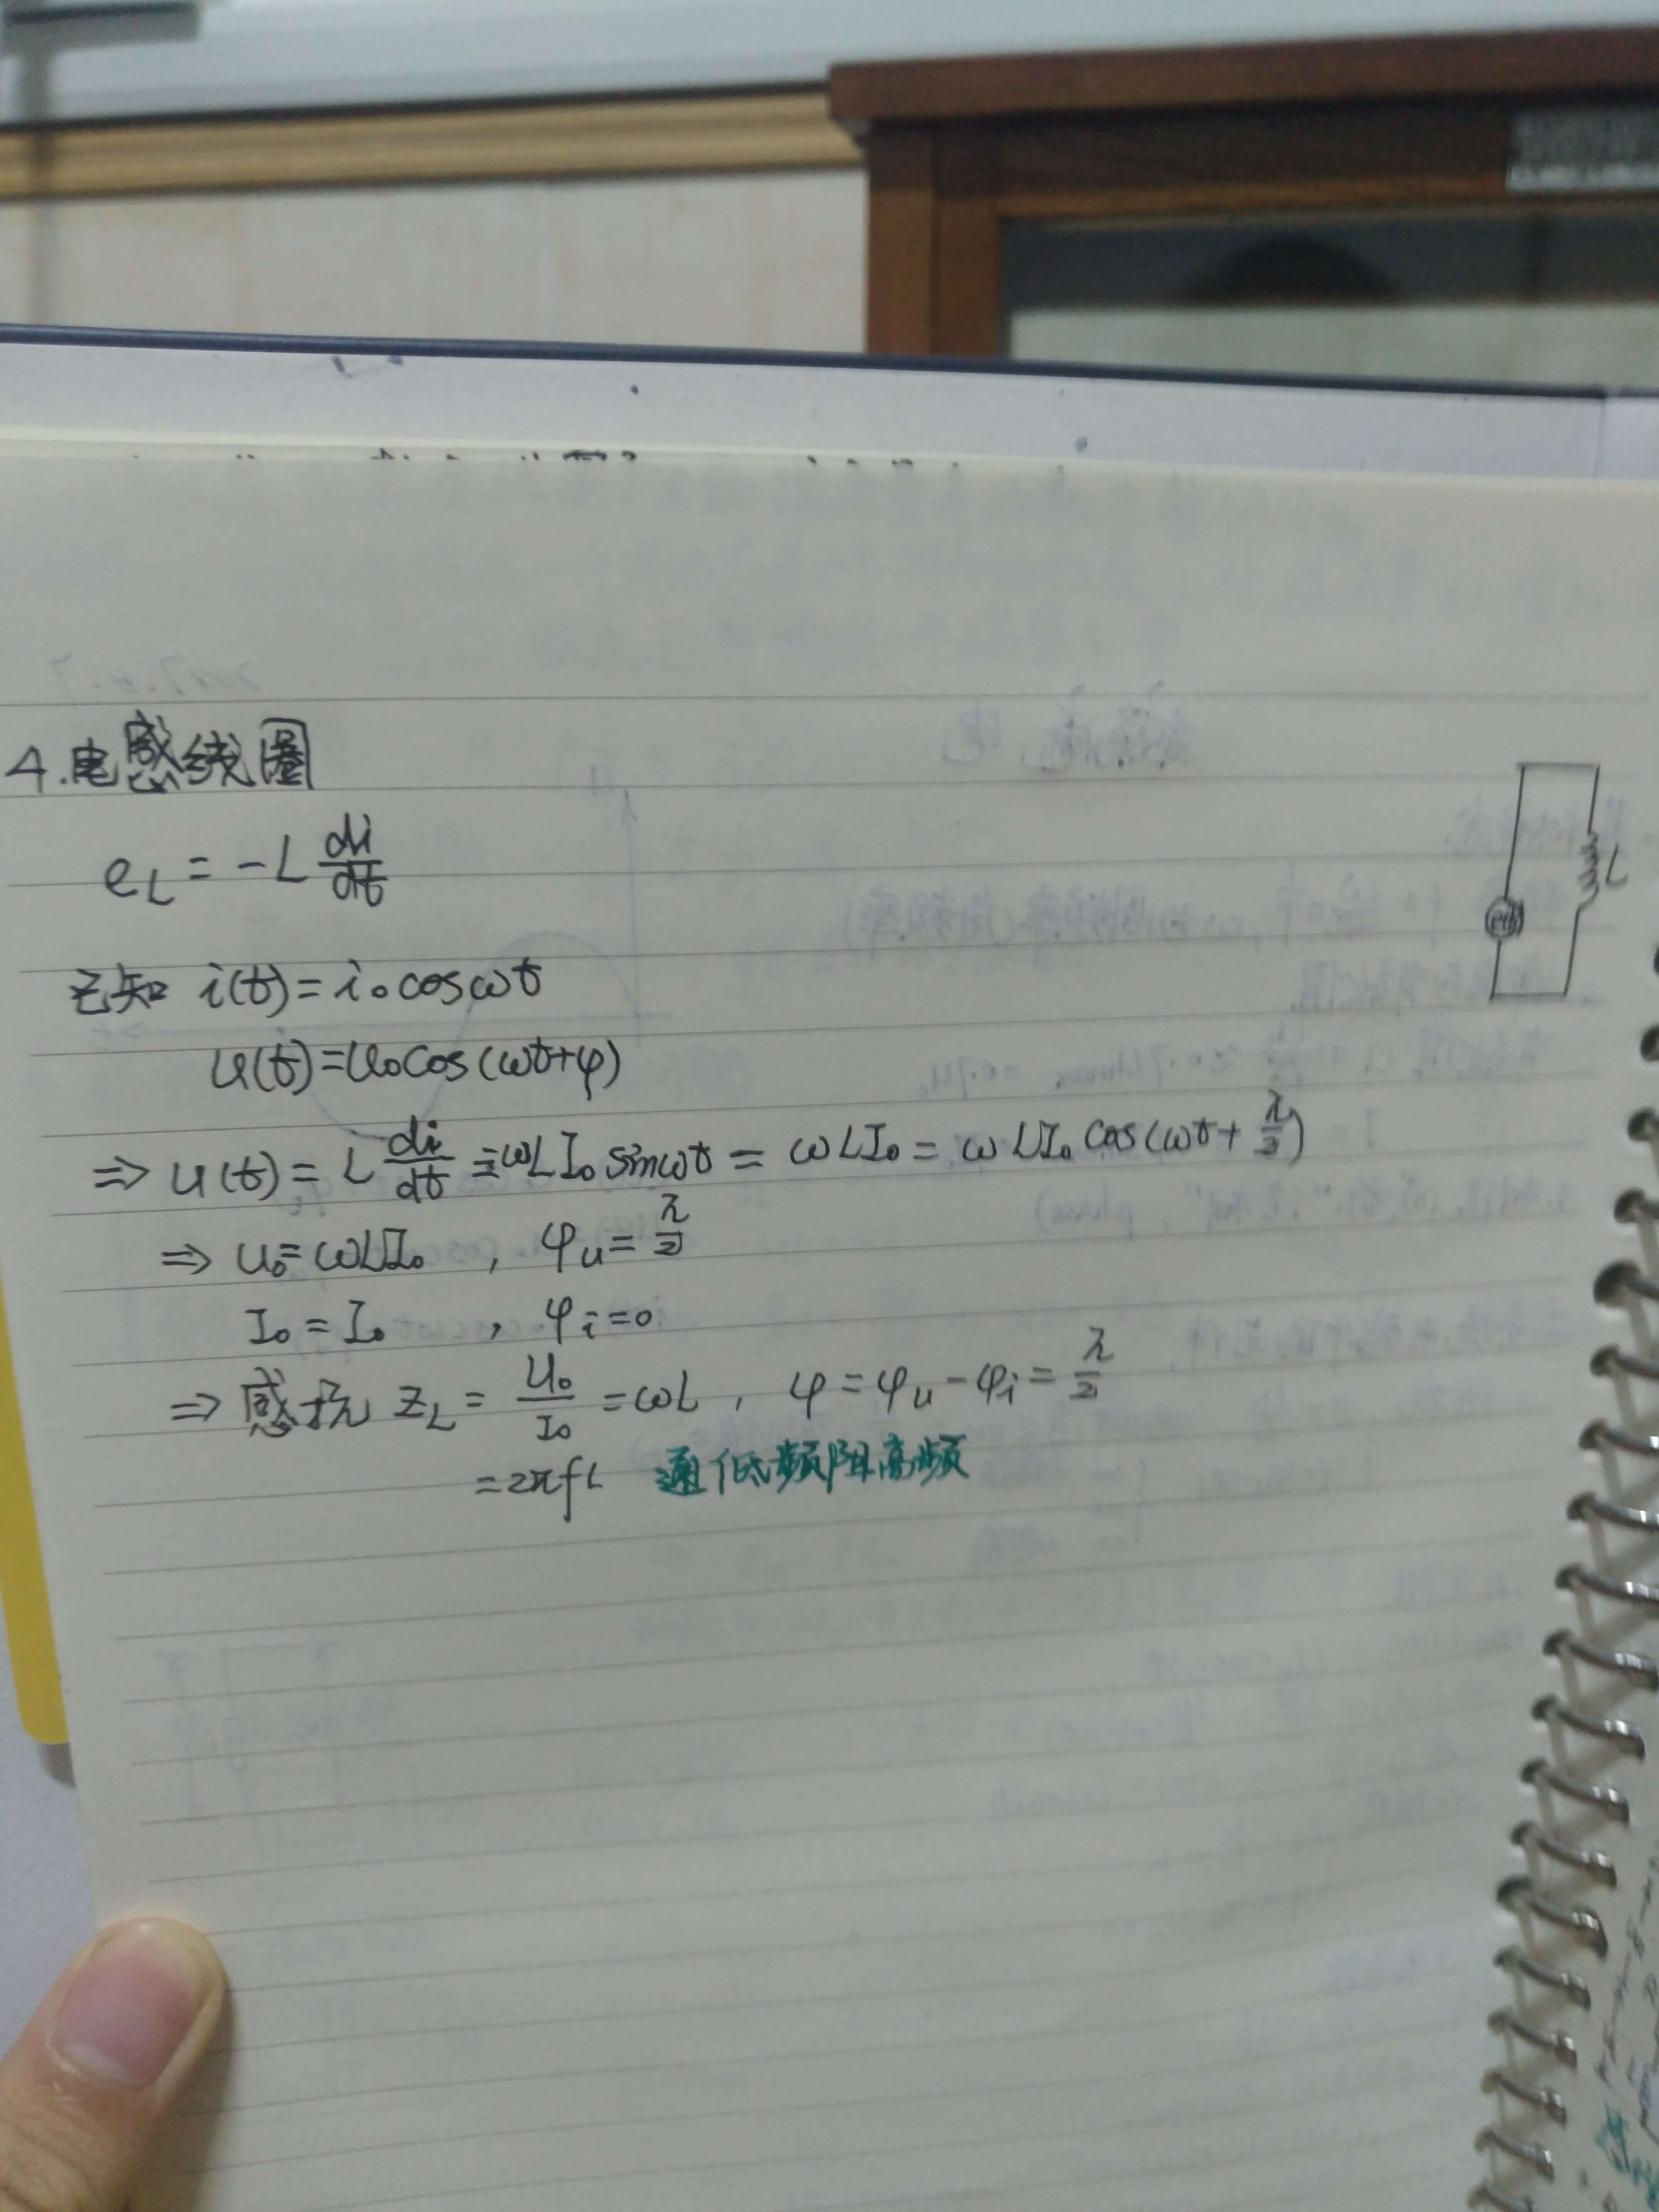 4.电感线圈
eL = -L di/dt
已知 i(t)=i₀cosωt
u(t)=u₀cos(ωt+φ)
⇒ u(t) = L di/dt = -ωLI₀ sinωt = ωLI₀ = ωLI₀ cos(ωt+π/2)
⇒ u₀=ωLI₀ , φu=π/2
I₀=I₀ , φi=0
⇒ 感抗 ZL = U₀/I₀ =ωL , φ=φu-φi=π/2
=2πfL 通低频阻高频
L